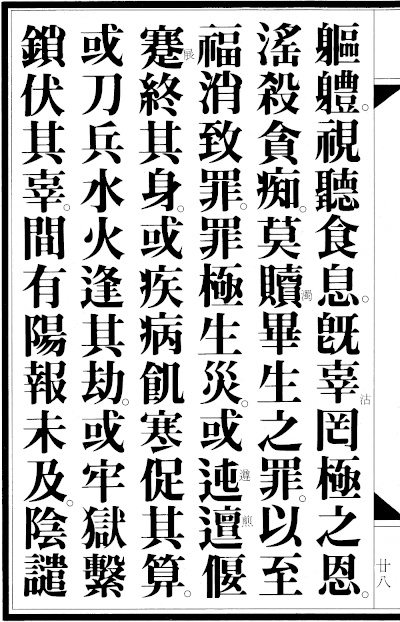 軀軆。視聽食息。旣辜沽罔極之恩。
滛殺貪痴。莫贖濁畢生之罪。以至
福消致罪。罪極生災。或迍遵邅煎偃
蹇展終其身。或疾病飢寒促其算。
或刀兵水火逢其劫。或牢獄繫
鎖伏其辜。間有陽報未及。陰譴
廿八